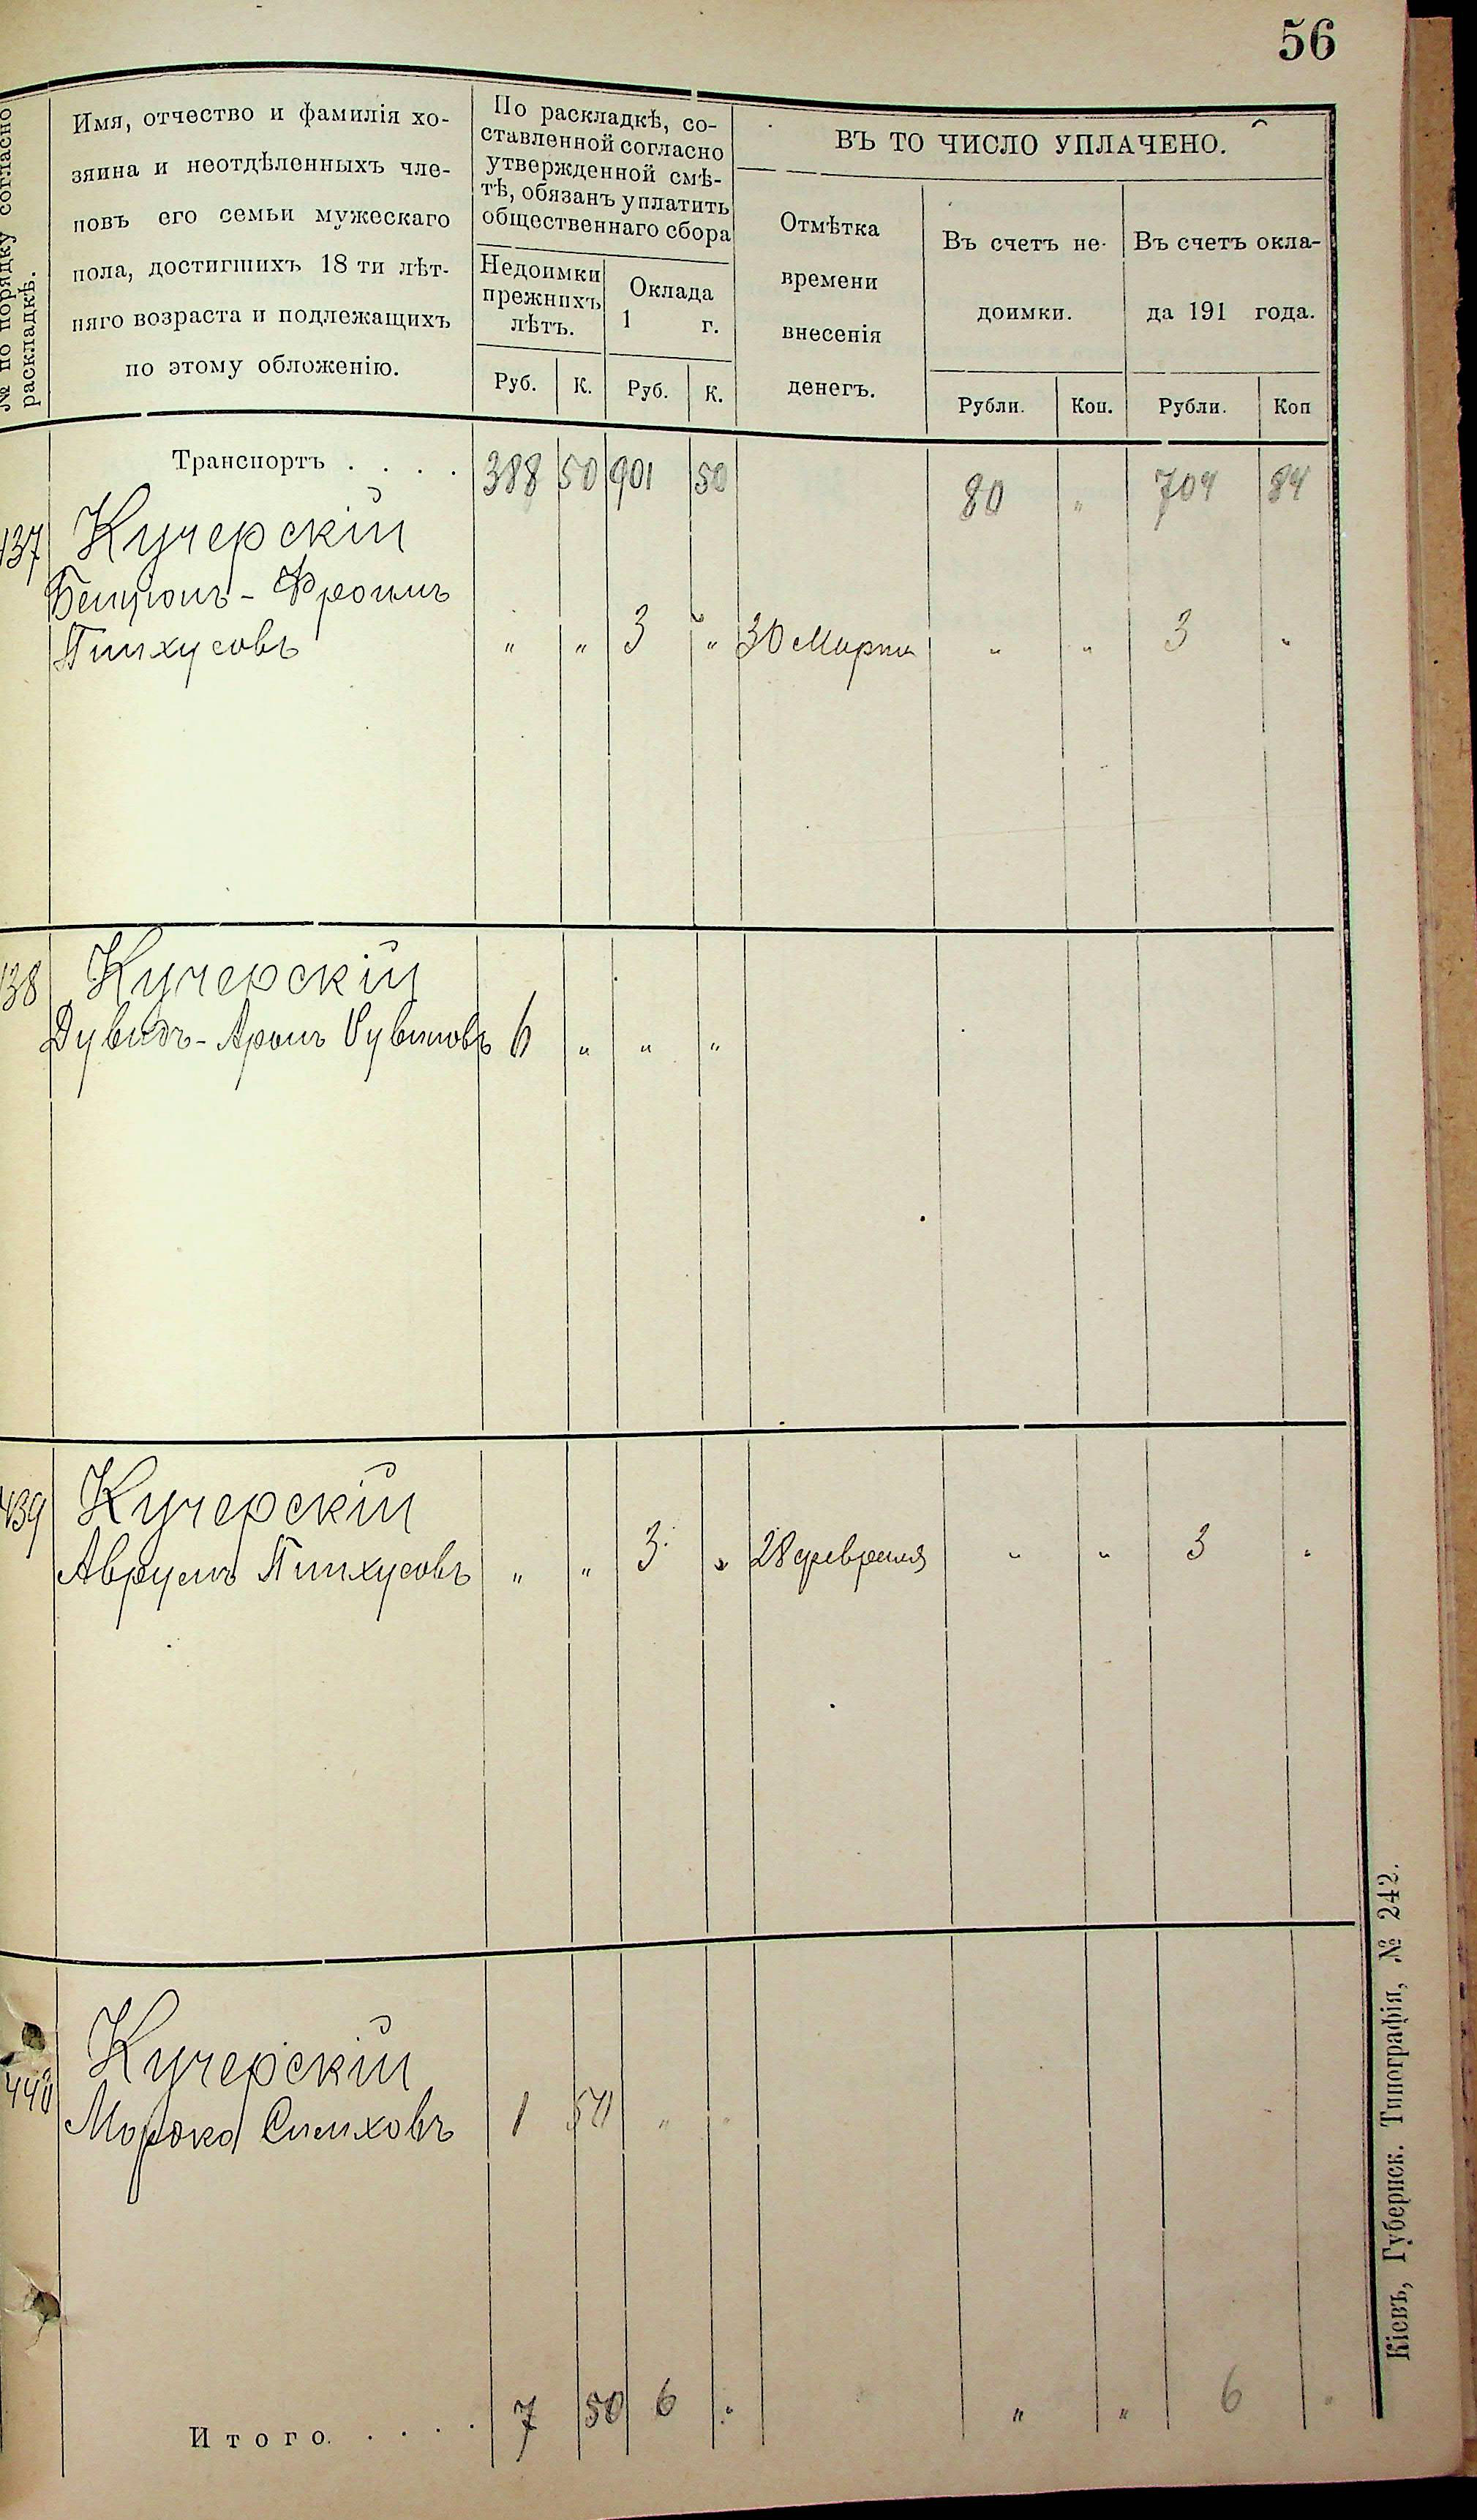 56
№ по порядку согласно
раскладкѣ.
Имя, отчество и фамилія хо-
зяина и неотдѣленныхъ чле-
новъ его семьи мужескаго
пола, достигшихъ 18 ти лѣт-
няго возраста и подлежащихъ
по этому обложенію.
По раскладкѣ, со-
ставленной согласно
утвержденной смѣ-
тѣ, обязанъ уплатить
общественнаго сбора
Недоимки
прежнихъ
лѣтъ.
Оклада
1 г.
Руб. К. Руб. К.
ВЪ ТО ЧИСЛО УПЛАЧЕНО.
Отмѣтка
времени
внесенія
денегъ.
Въ счетъ не-
доимки.
Въ счетъ окла-
да 191 года.
Рубли. Коп. Рубли. Коп
Транспортъ . . . . 388 50 901 50 80 „ 704 84
437 Кучерскій
Бенціонъ-Фроимъ
Пинхусовъ „ „ 3 „ 30 Марта „ „ 3 „
438 Кучерскій
Дувидъ-Аронъ Рувиновъ 6 „ „ „
439 Кучерскій
Аврумъ Пинхусовъ „ „ 3 „ 28 февраля „ „ 3 „
440 Кучерскій
Мордко Симховъ 1 50 „ „
Итого. . . . . 7 50 6 „ „ „ 6 „
Кіевъ, Губернск. Типографія, № 242.